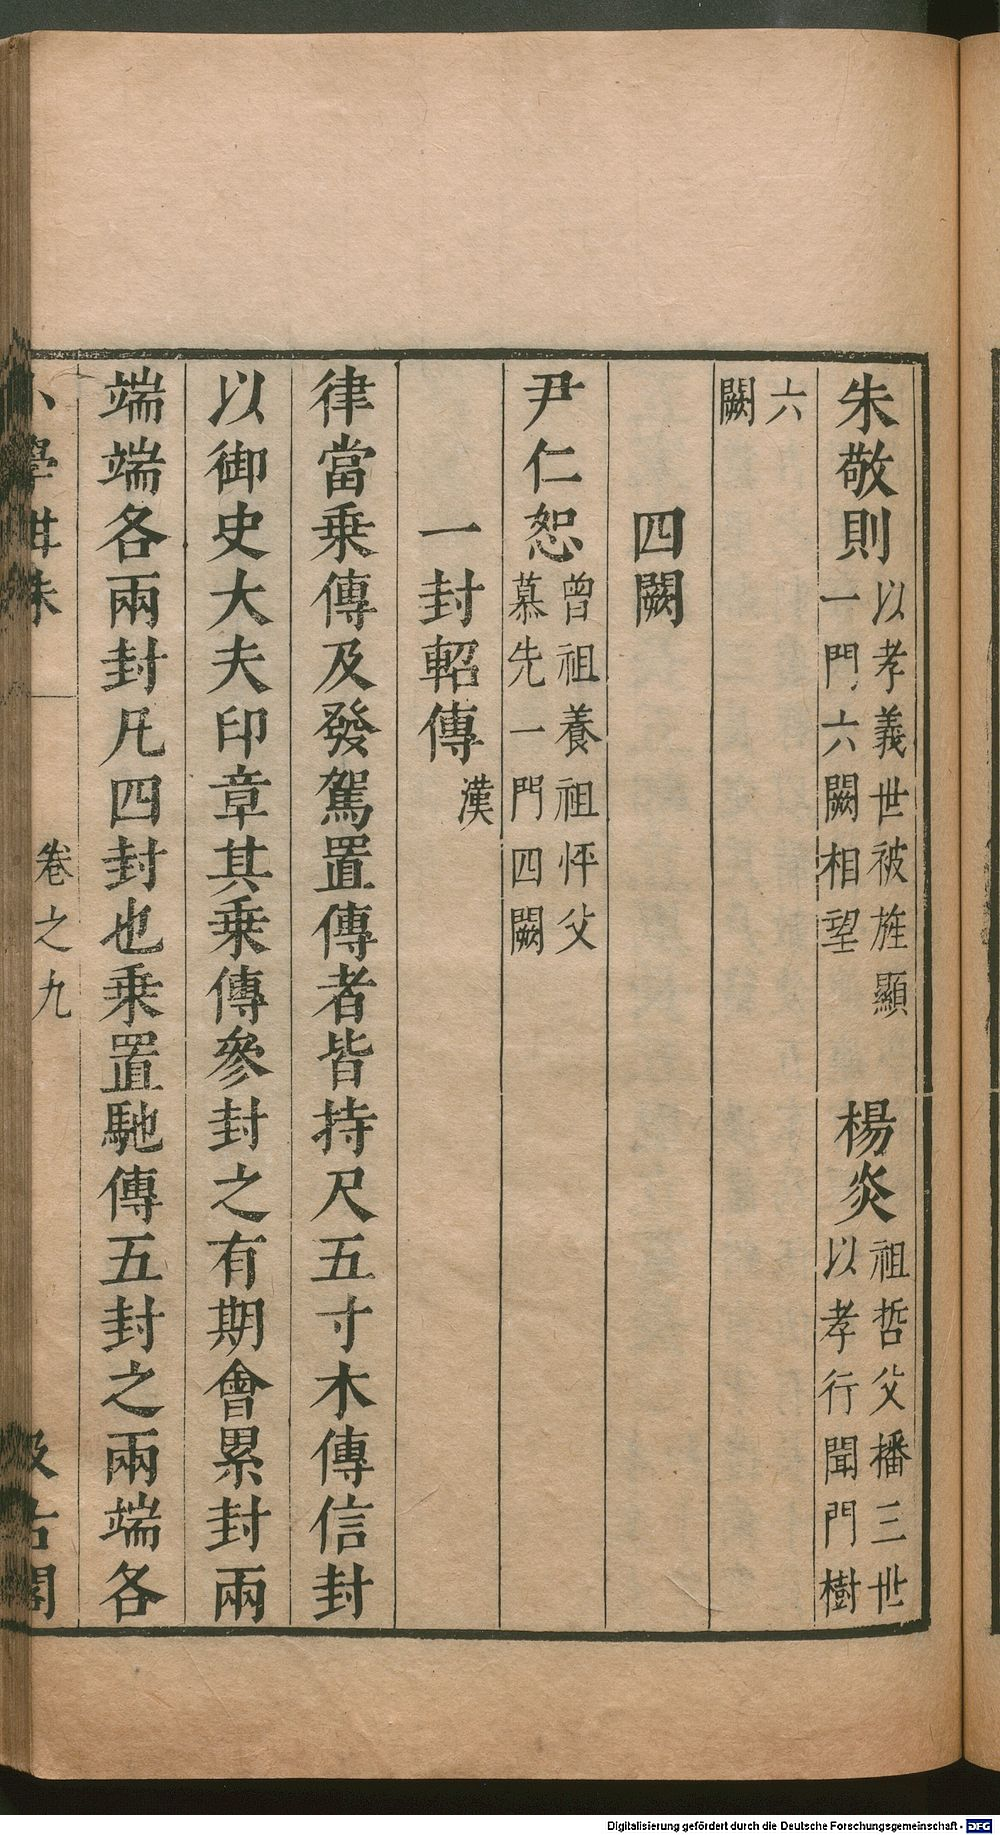 朱敬則以孝義世被旌顯一門六闕相望 楊炎祖哲父播三世以孝行聞門樹
六闕
四闕
尹仁恕曾祖養祖怦父慕先一門四闕
一封軺傳漢
律當乗傳及發駕置傳者皆持尺五寸木傳信封
以御史大夫印章其乗傳參封之有期會累封兩
端端各兩封凡四封也乗置馳傳五封之兩端各
小學紺珠 卷之九 汲古閣
Digitalisierung gefördert durch die Deutsche Forschungsgemeinschaft - DFG